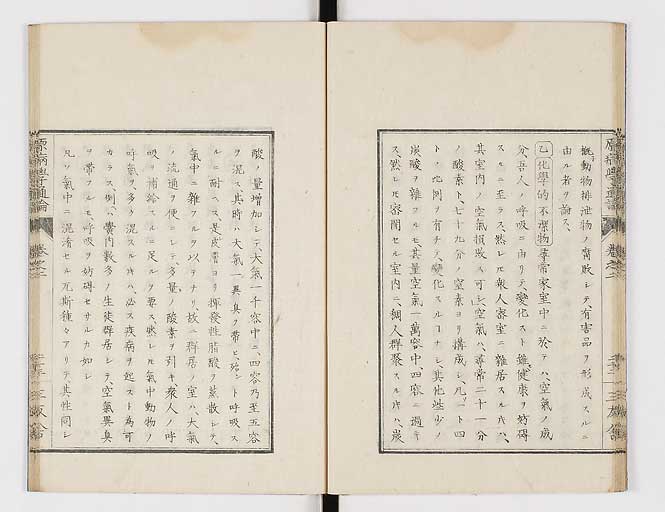 概動物排泄物ノ腐敗シテ、有害品ヲ形成スルニ
由ル者ヲ論ス、
乙化學的不潔物 尋常家室中ニ於テハ、空氣ノ成
分、吾人ノ呼吸ニ由リテ、變化スト雖健康ヲ妨碍
スルニ至ラス、然レ𪜈衆人家室ニ雜居スル𪜈ハ、
其室内ノ空氣損敗ス可シ、空氣ハ、尋常二十一分
ノ酸素ト、七十九分ノ窒素ヨリ構成シ、凡ソ一ト四
トノ比例ヲ有チテ、變化スル┐ナシ、其他些少ノ
炭酸ヲ雜フルモ、其量空氣一萬容中、四容ニ過キ
ス、然レ𪜈密閉セル室内ニ、稠人群聚スル𪜈ハ、炭
原病學通論
卷之二
三檨舍
酸ノ量増加シテ、大氣一千容中ニ、四容乃至五容
ヲ混ス、其時ハ大氣一異臭ヲ帶ヒ、殆ント呼吸ス
ルニ耐ヘス、是皮膚ヨリ揮發性脂酸ヲ蒸散シテ、
氣中ニ雜フルヲ以テナリ、故ニ群居ノ室ハ、大氣
ノ流通ヲ便ニシテ、多量ノ酸素ヲ引キ、衆人ノ呼
吸ヲ補給スルニ足ルヲ要ス、然レ𪜈氣中動物ノ
呼氣ヲ多ク混スル𪜈ハ、必ス疾病ヲ起スト為可
カラス、例ハ黌内數多ノ生徒群居シテ、空氣異臭
ヲ帶フルモ、呼吸ヲ妨碍セサルカ如シ
凡ソ氣中ニ混淆セル瓦斯種々アリテ、其性同シ
原病學通論
卷之二